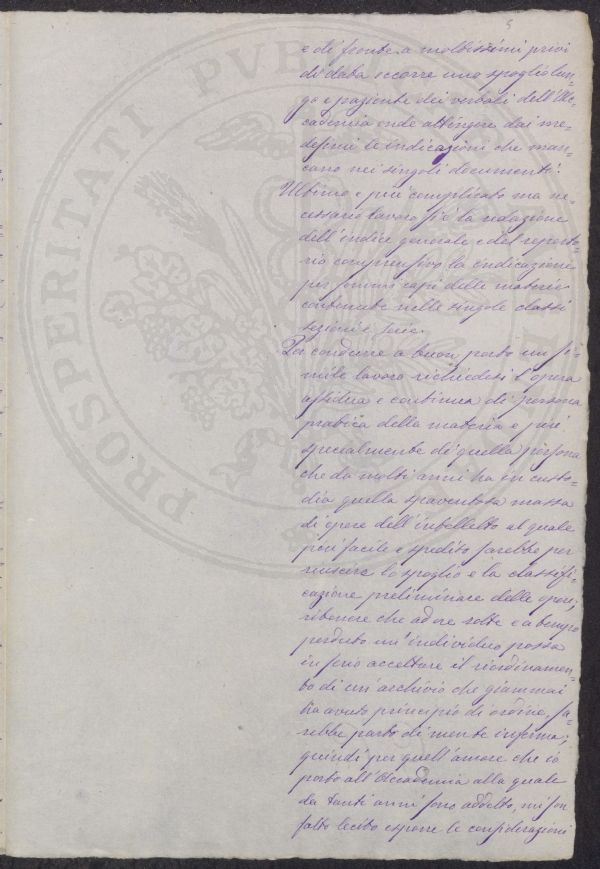 5
e di fronte a moltissimi privi
di data occorre uno spoglio lun=
go e paziente dei verbali dell'Ac=
cademia onde attingere dai me=
desimi le indicazioni che man=
cano nei singoli documenti.
Ultimo e più complicato ma ne=
cessario lavoro si è la redazione
dell'indice generale e del reperto=
rio comprensivo la indicazione
per sommi capi delle materie
contenute nelle singole classi
sezioni e serie.
Per condurre a buon porto un si=
mile lavoro richiedesi l'opera
assidua e continua di persona
pratica della materia e più
specialmente di quella persona
che da molti anni ha in custo=
dia quella spaventosa massa
di opere dell'intelletto al quale
più facile e spedito sarebbe per
riuscire lo spoglio e la classifi=
cazione preliminare delle opere;
ritenere che ad ore rotte e a tempo
perduto un'individuo possa
in serio accettare il riordinamen=
to di un'archivio che giammai
ha avuto principio di ordine, sa=
rebbe parto di mente inferma;
quindi per quell'amore che io
porto all'Accademia alla quale
da tanti anni sono addetto, mi son
fatto lecito esporre le considerazioni
PROSPERITATI PVBLICAE